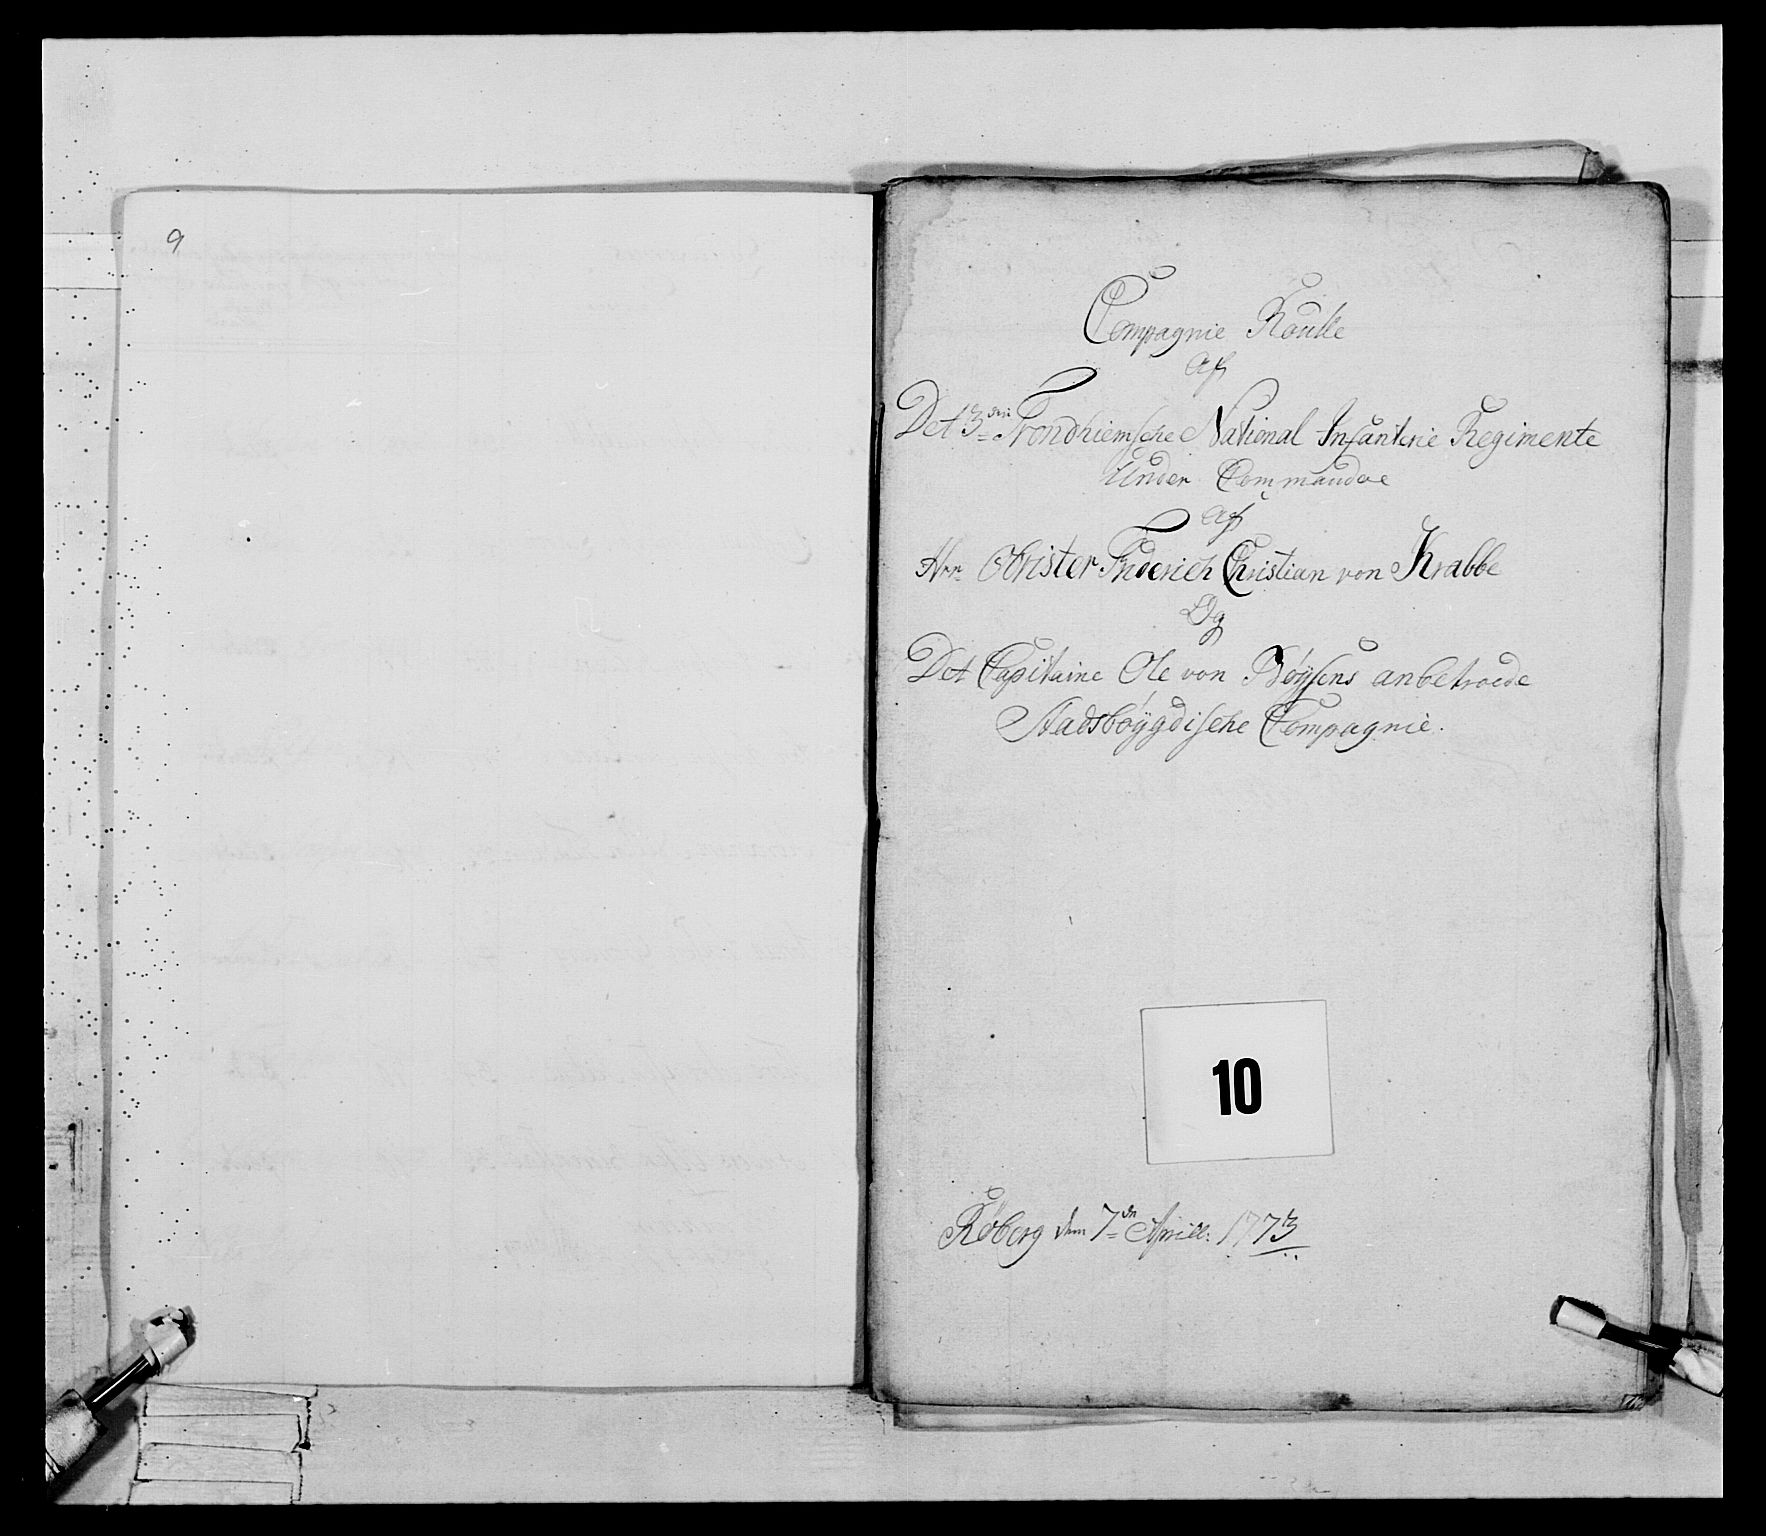 9
Compagnie Roulle
Af
Det 3die Trondhiemsche National Infanterie Regimente
Under Commandoe
Af
Hrr Obrister Friderich Christian von Krabbe
Og
Det Capitaine Ole von Böÿsens anbetroede
Stadsböÿgdische Compagnie.
10
Röberg dem 7de Aprill: 1773